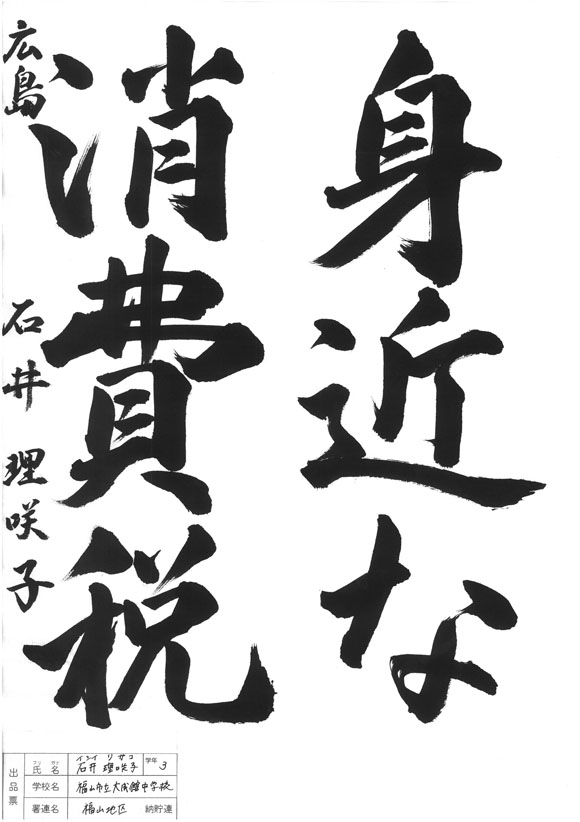 身近な
消費税
広島 石井 理咲子
出品票
フリガナ イシイ リサコ
氏名 石井 理咲子 学年 3
学校名 福山市立大成館中学校
署連名 福山地区 納貯連